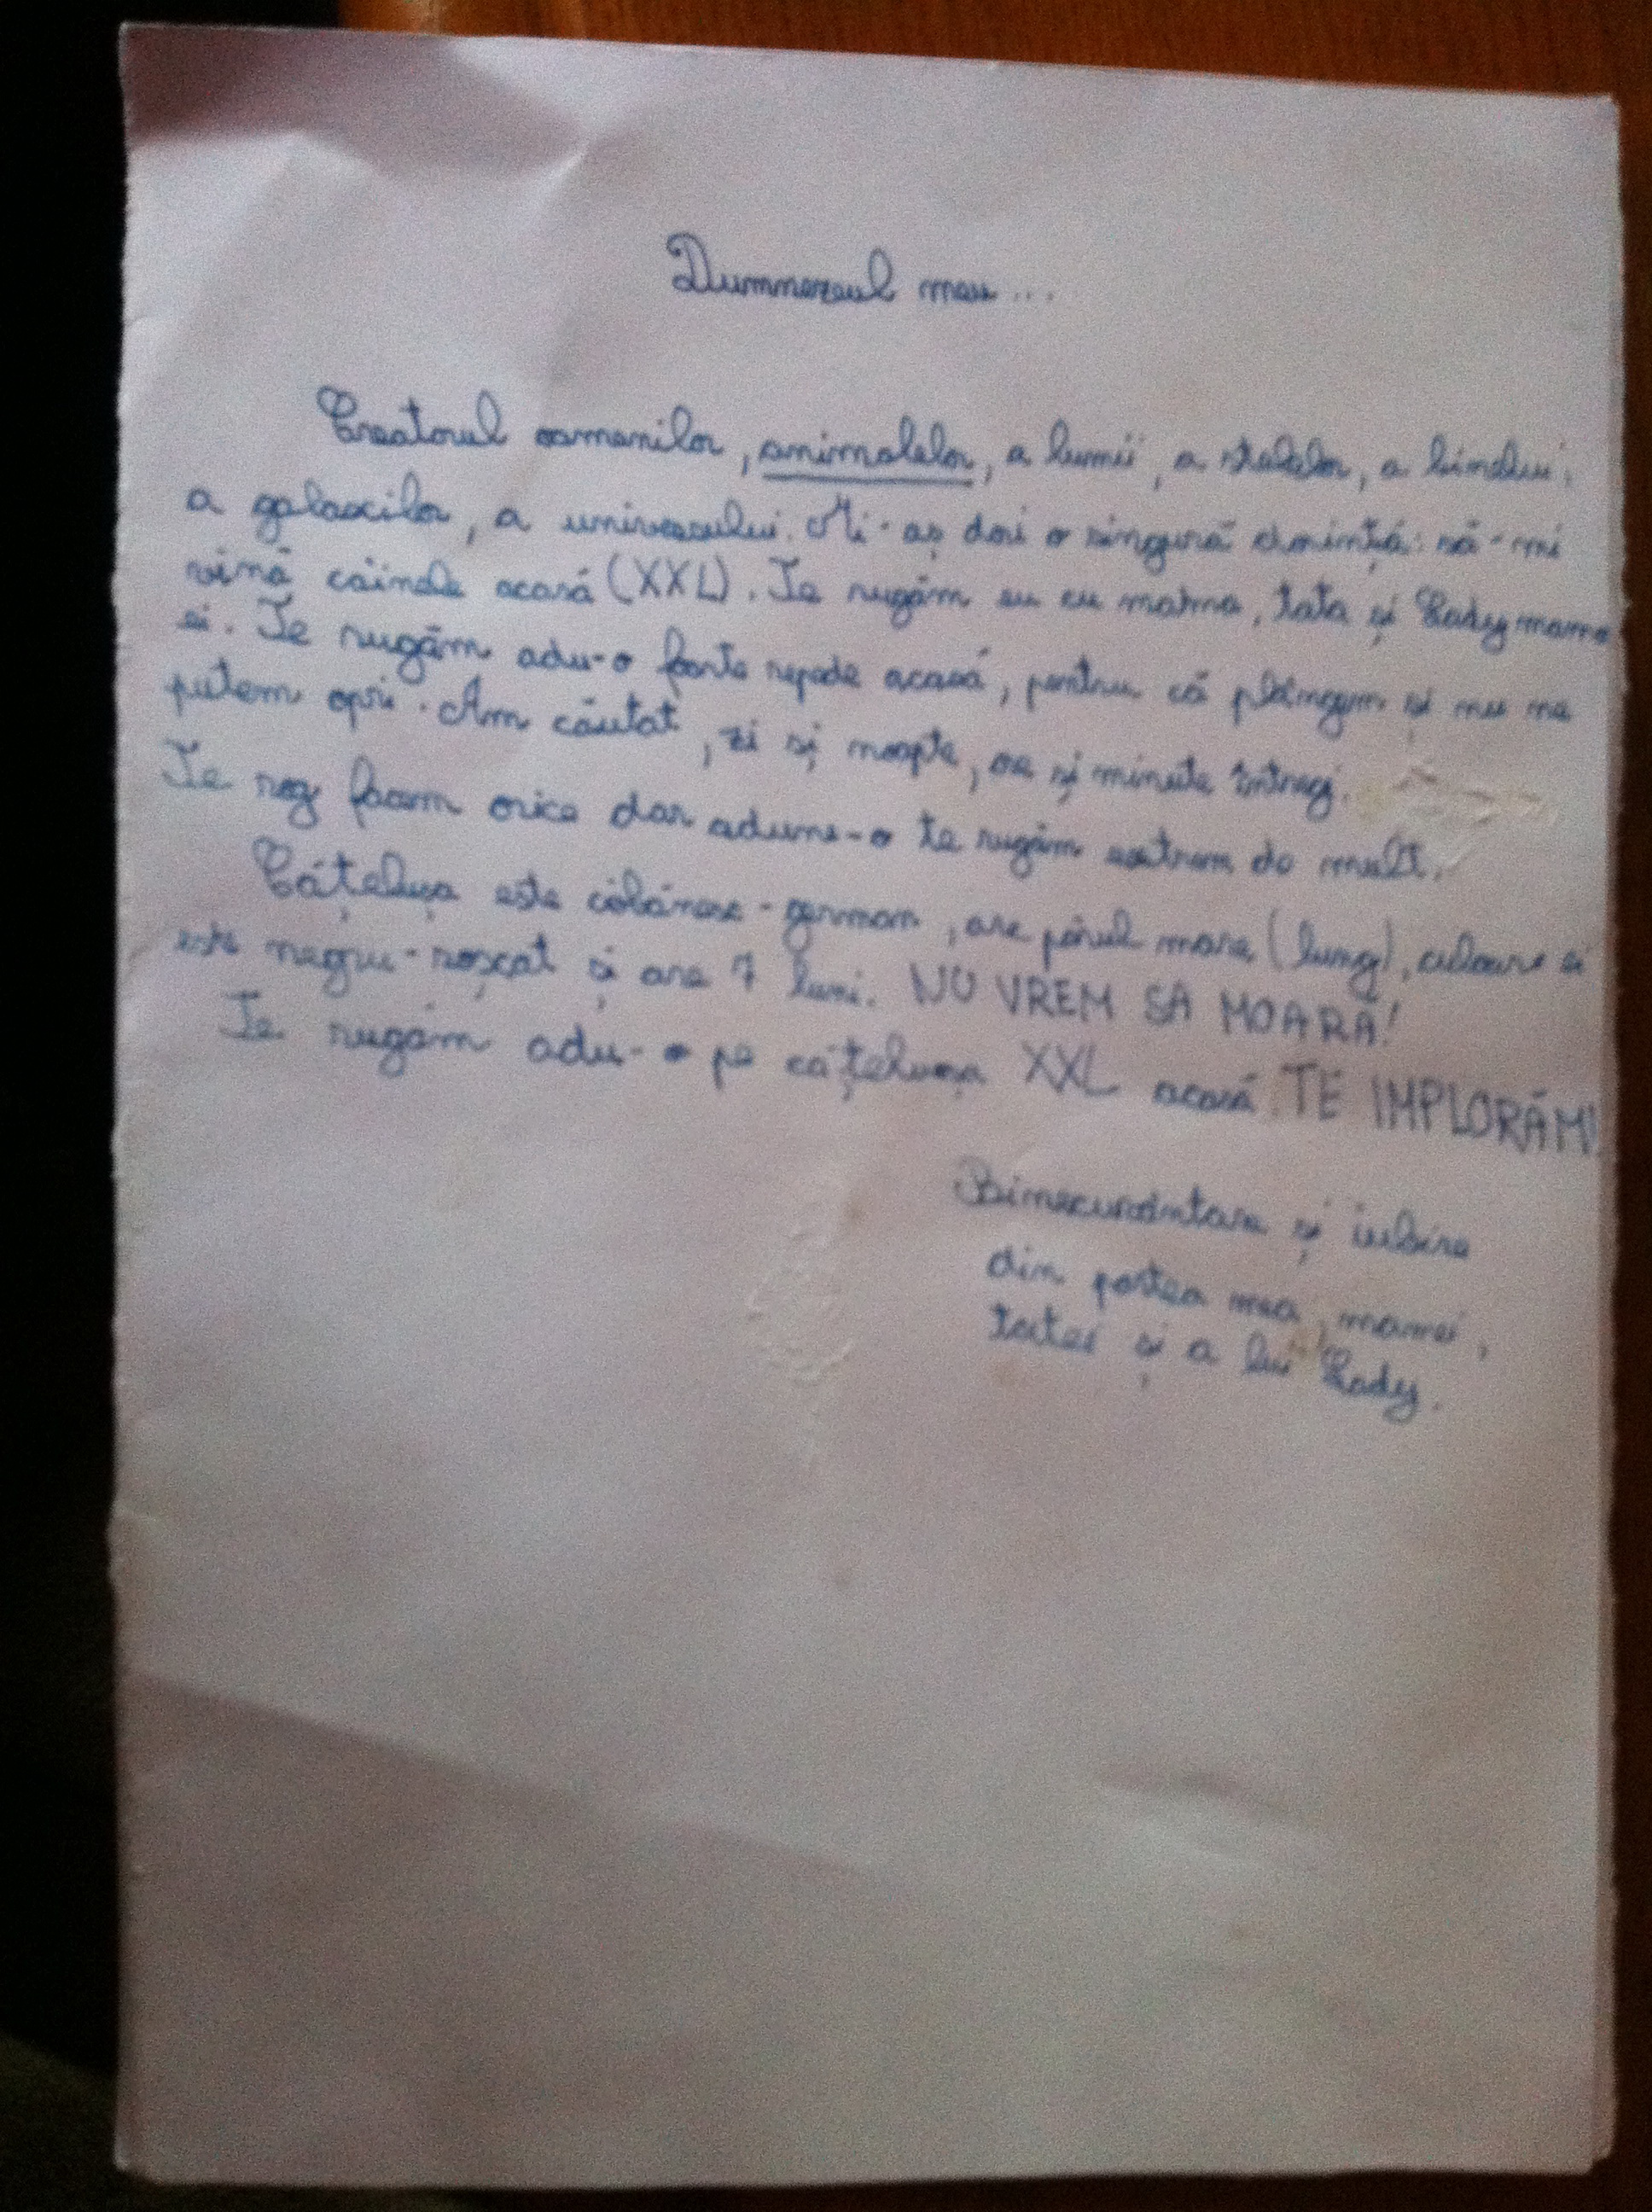 Dumnezeul meu...
Creatorul oamenilor, animalelor, a lumii, a stelelor, a binelui,
a galaxcilor, a universului. Mi-aș dori o singură dorință: să-mi
vină câinele acasă (XXL). Te rugăm eu cu mama, tata și Lady mama
ei. Te rugăm adu-o foarte repede acasă, pentru că plângem și nu ne
putem opri. Am căutat, zi și noapte, ore și minute întregi.
Te rog facem orice dar adune-o te rugăm extrem de mult.
Cățelușa este ciobănesc-german, are părul mare (lung), culoare ei
este negru-roșcat și are 7 luni. NU VREM SĂ MOARĂ!
Te rugăm adu-o pe cățelușa XXL acasă. TE IMPLORĂM!
Binecuvântare și iubire
din partea mea, mamei,
tatei și a lui Lady.